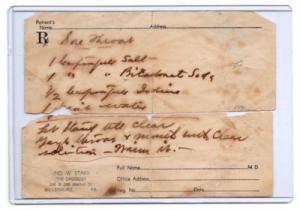 Patient's
Name Address
R Sore Throat
1 teaspoonful Salt
1 " " Bicarbonate Soda
1/2 teaspoonful Iodine
1 pint water
Let Stand till Clear
Gargle throat & mouth with Clear
solution - Warm it.-
Full Name M.D.
JNO. W. STARR
THE DRUGGIST
Office Address
WELLSBURG,
Reg. No. Date